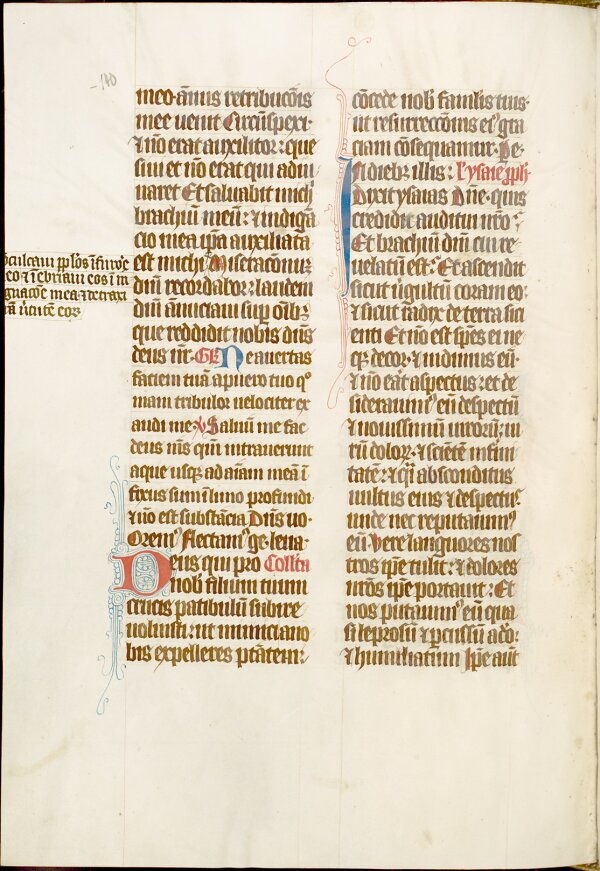 -140
meo·annus retribucōis
mee uenit Circūspexi·
⁊ nō erat auxilitor: que
siui et nō erat qui adiu
uaret Et saluabit mich
brachiū meū: ⁊ indigna
cio mea ip̄a auxiliata
est michi Miseracōnum
dn̄i recordabor: laudem
dn̄i ānuciam suꝑ oīb;
que reddidit uobis dn̄s
deus nr̄· GR̄ Ne auertas
faciem tuā a puero tuo qͦ
niam tribulor uelociter ex
audi me· V Saluū me fac
deus m̄s qm̄ intrauerunt
aque usq; ad aīam meā ī
fixus sum ī limo profundi
⁊ nō est substācia Dn̄s uo·
Orem̄ Flectam̄ ge· leua·
Deus qui pro Coll̄ta
nob̄ filium tuum
crucis patibulū subire
uoluisti: ut inimici a no
bis expelleres ptātem:
cōculcaui ppl̄os ī furore
meo ⁊ īebriaui eos ī in
dignacōe mea ⁊ detraxi
ī trā ūtutē eoꝝ
cōcede nob̄ famulis tuis·
ut resurreccōnis eiꝰ gra
ciam cōsequamur· Pe·
In dieb; illis: l· ysaie ꝓph̄
Dixit ysaias Dn̄e· quis
credidit auditui nr̄o:
Et brachiū dn̄i cui re
uelatū est: Et ascendit
sicut ūgultū coram eo·
⁊ sicut radix de terra sici
enti Et nō est sp̄es ei ne
q; decor· ⁊ uidimus eū·
⁊ nō erāt aspectus: et de
siderauimꝰ eū despectū
⁊ nouissimū uiroruʒ: ui
rū doloꝝ· ⁊ sciētē infirmi
tatē: ⁊ q̄i absconditus
uultus eius ⁊ despectꝰ·
unde nec reputauimꝰ
eū: Vere languores nos
tros ip̄e tulit: ⁊ dolores
nr̄os ip̄e portauit: Et
nos putauimꝰ eū qua
si leprosū ⁊ ꝑcussū a do·
⁊ humiliatum Ip̄e aūt